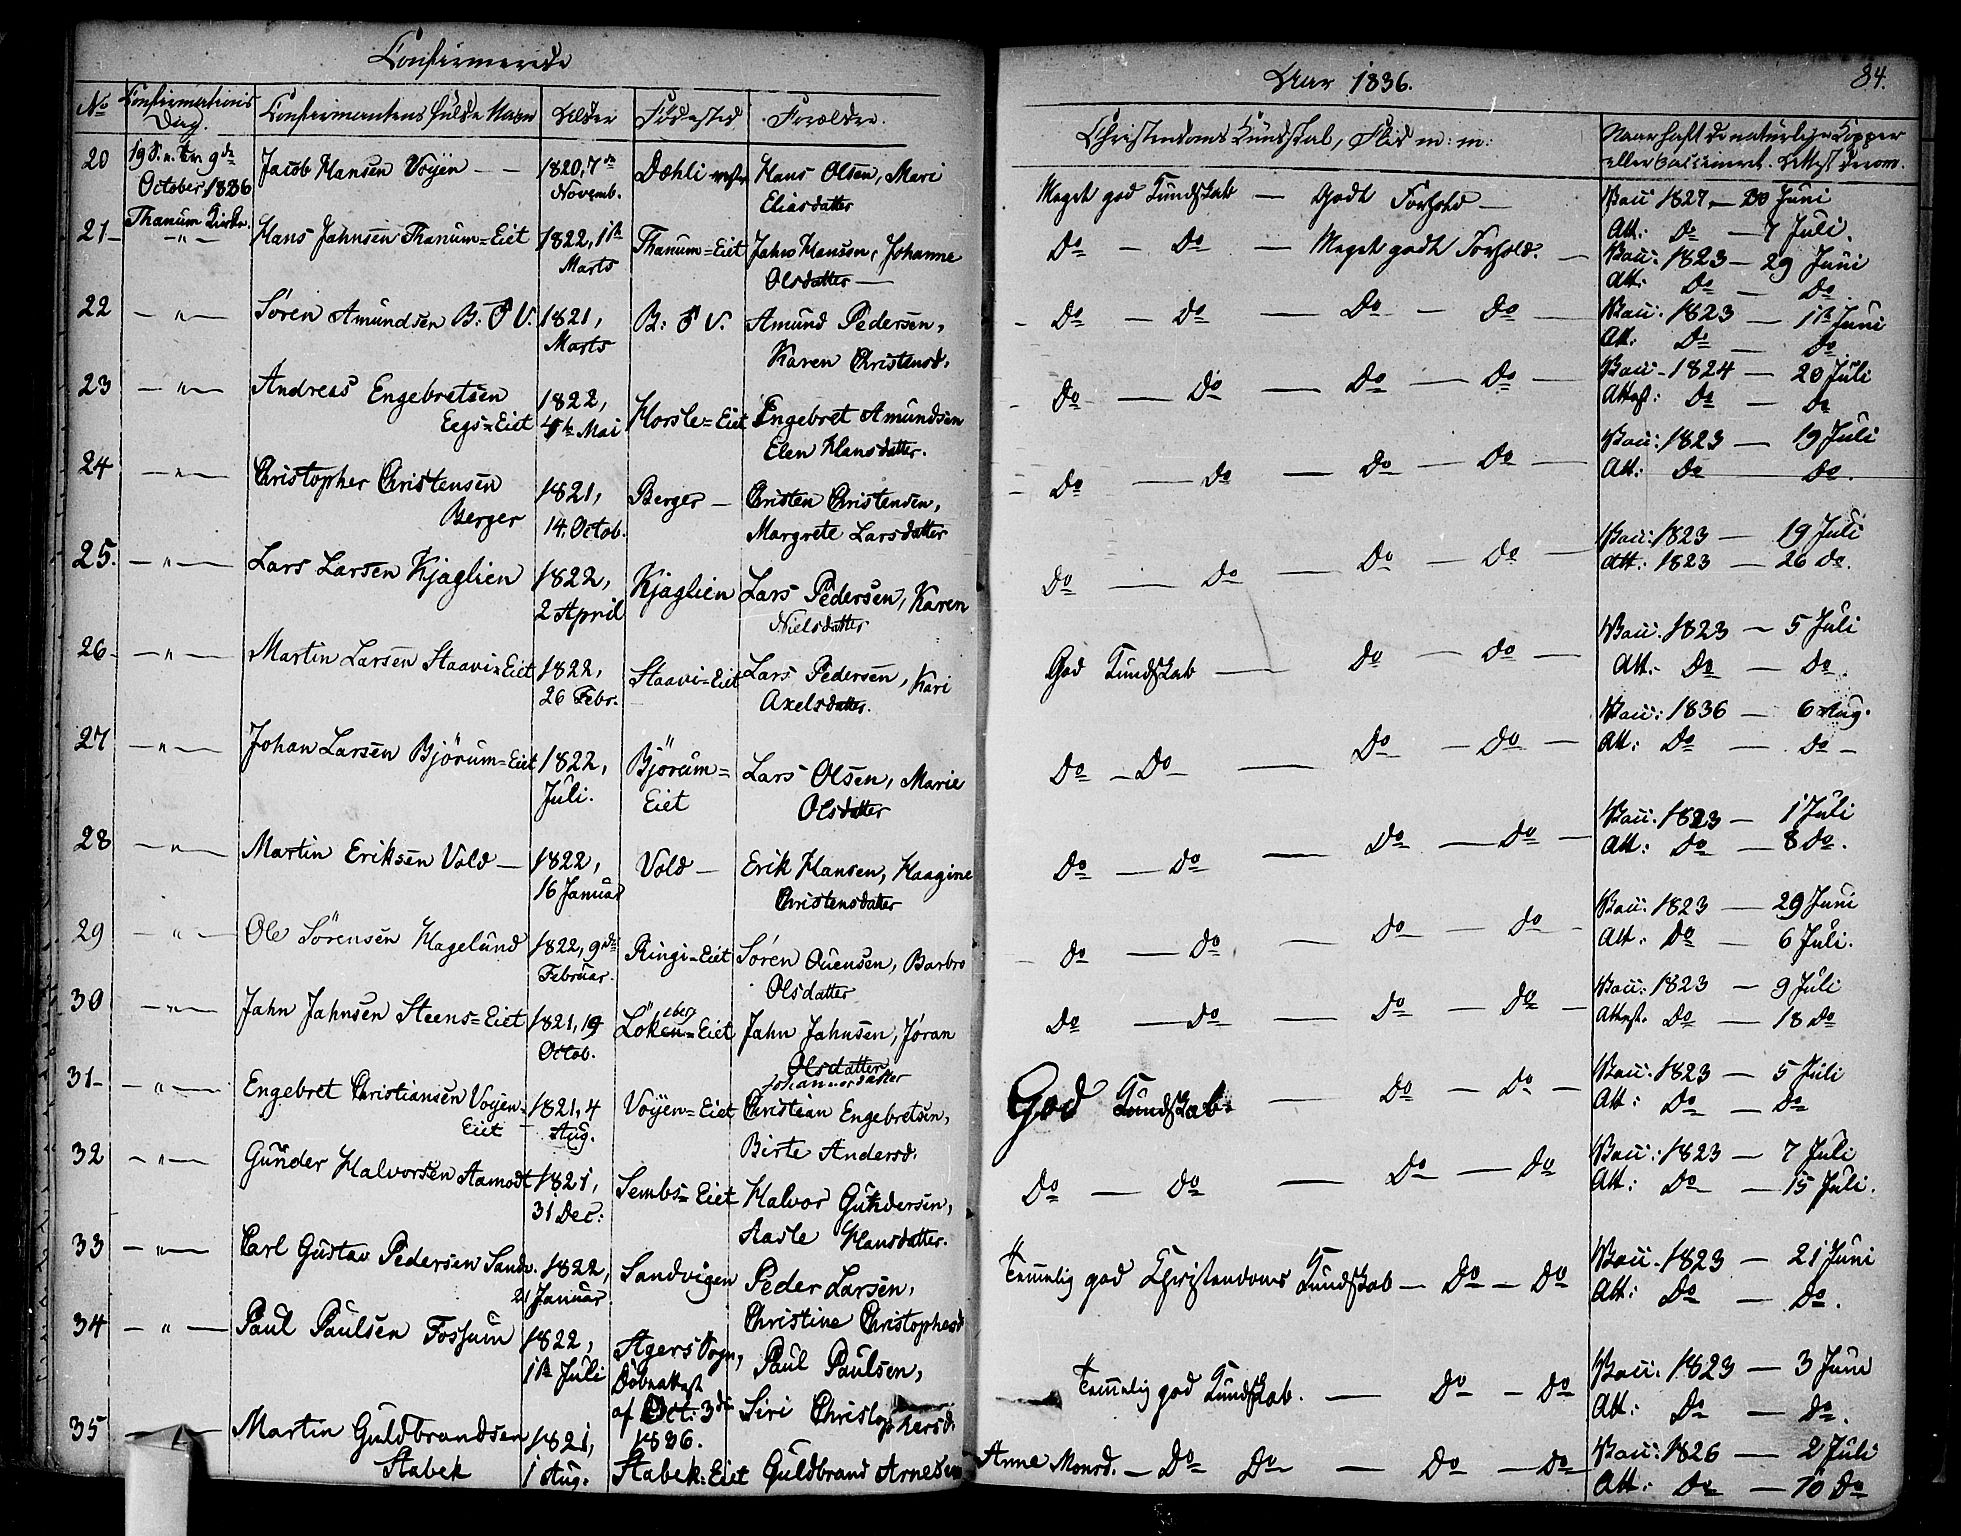 Confirmerede
No Confirmations Dag. Confirmantens fulde Navn Alder Födested Forældre.
20 19 S. n. Tr. 9de Jacob Hansen Vöÿen 1820, 7de Dæhli Hans Olsen, Mari
October 1836 Novemb. Eliasdatter
Thanum Kirke.
21 - " - Hans Jahnsen Thanum=Eiet 1822, 1ste Thanum=Eiet Jahn Hansen, Johanne
Marts Olsdatter
22 - " - Sören Amundsen B: S V. 1821, B: S V. Amund Pedersen,
Marts Karen Christensd.
23 - " - Andreas Engebretsen 1822, Horsle=Eiet Engebret Amundsen
Eegs=Eiet Mai Elen Hansdatter.
24 - " - Christopher Christensen 1821, Berger - Christen Christensen,
Berger 14. Octob. Margrete Larsdatter
25. - " - Lars Larsen Kjaglien 1822, Kjaglien Lars Pedersen, Karen
2 April Nielsdatter
26 - " - Martin Larsen Staavi=Eiet 1822, Staavi=Eiet Lars Pedersen, Kari
26 Febr. Axelsdatter.
27 - " - Johan Larsen Björum=Eiet 1822, Björum= Lars Olsen, Marie
Juli. Eiet Olsdatter
28 - " - Martin Eriksen Vold - 1822, Vold - Erik Hansen, Haagine
16 Januar Christensdatter
29 - " - Ole Sörensen Hagelund 1822, 9de Ringi=Eiet Sören Ouensen, Barbro
Februar. Olsdatter
30 - " - Jahn Jahnsen Steens=Eiet 1821, 19 Löken=Eiet Jahn Jahnsen, Jöran
Octob. Olsdatter
Johannesdatter
31 - " - Engebret Christiansen Vöÿen= 1821, 4 Vöÿen=Eiet Christian Engebretsen,
Eiet Aug. Birte Andersd.
32 - " - Gunder Halvorsen Aamodt 1821, Sembs=Eiet Halvor Gundersen,
31 Dec: Aasle Hansdatter.
33 - " - Carl Gustav Pedersen Sandv. 1822, Sandvigen Peder Larsen,
21 Januar Christine Christophersd
34 - " - Paul Paulsen Fossum 1822, Agers Sogn, Paul Paulsen,
1ste Juli Döbeattest Siri Christophersd.
af Oct: 3de
1836.
35 - " - Martin Guldbrandsen 1821, Stabek=Eiet Guldbrand Arnesen
Stabek 1 Aug.
Aar 1836. 84.
Christendoms Kundskab, Flid m: m: Naar haft de naturlige Kopper
eller Vaccineret. Attest derom.
Meget god Kundskab - Godt Forhold - Vacc: 1827 - 30 Juni
Att: Do - 7 Juli.
Do - Do - Meget godt Forhold. - Vacc: 1823 - 29 Juni
Att: Do - Do.
Do - Do - Do - Do - Vacc: 1823 - 1ste Juni
Att: Do - Do
Do - Do - Do - Do - Vacc: 1824 - 20 Juli
Attest: Do - Do
Do - Do - Do - Do - Vacc: 1823 - 19 Juli
Att: Do Do.
Do - Do - Do - Do - Vacc: 1823 - 19 Juli
Att: 1823 - 26 Do.
God Kundskab - Do - Do - Vacc: 1823 - 5 Juli
Att: Do - Do
Do - Do - Do - Do - Vacc: 1836 - 6 Aug.
Att: Do - Do -
Do - Do - Do - Do - Vacc: 1823 - 1 Juli
Att: Do - 8 Do.
Do - Do - Do - Do - Vacc: 1823 - 29 Juni
Att: Do - 6 Juli.
Do - Do - Do - Do - Vacc: 1823 - 9 Juli
Attest. Do - 18 Do
God Kundskab. - Do - Do - Vacc: 1823 - 5 Juli
Att: Do - Do
Do - Do - Do - Do Vacc: 1823 - 7 Juli
Att: Do - 15 Juli.
Temmelig god Christendoms Kundskab - Do - Do Vacc: 1823 - 21 Juni
Att: Do - Do.
Temmelig god Kundskab. - Do - Do Vacc: 1823 - 3 Juni
Att: Do - Do.
Anne Monsd. - Do Do - Do - Do Vacc: 1826 - 2 Juli
Att: Do - 10 Do